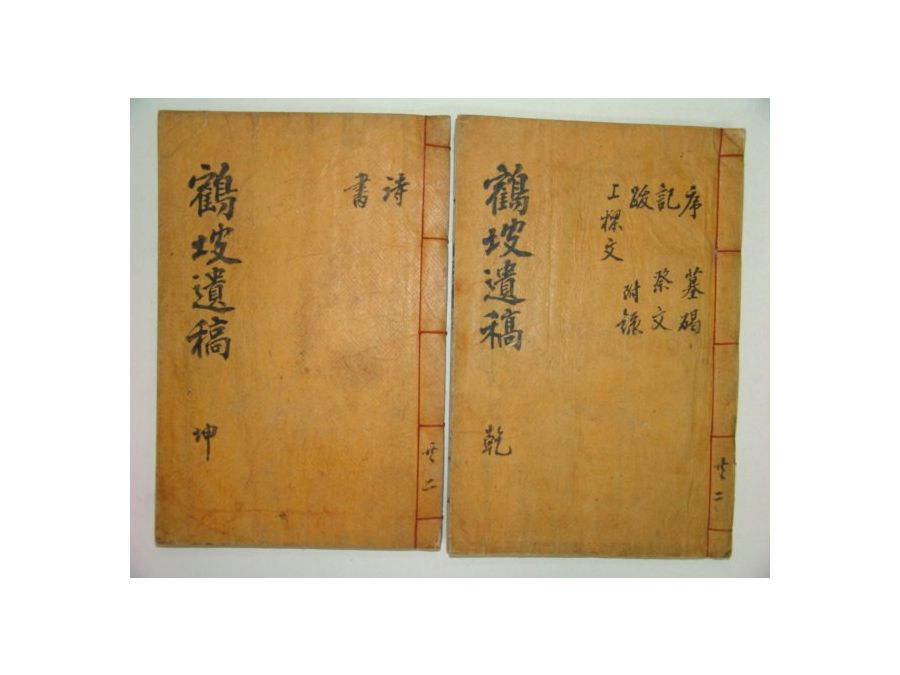 序 墓碣
記 祭文
跋
上樑文 附錄
鶴坡遺稿 乾
共二
詩
書
鶴坡遺稿 坤
共二